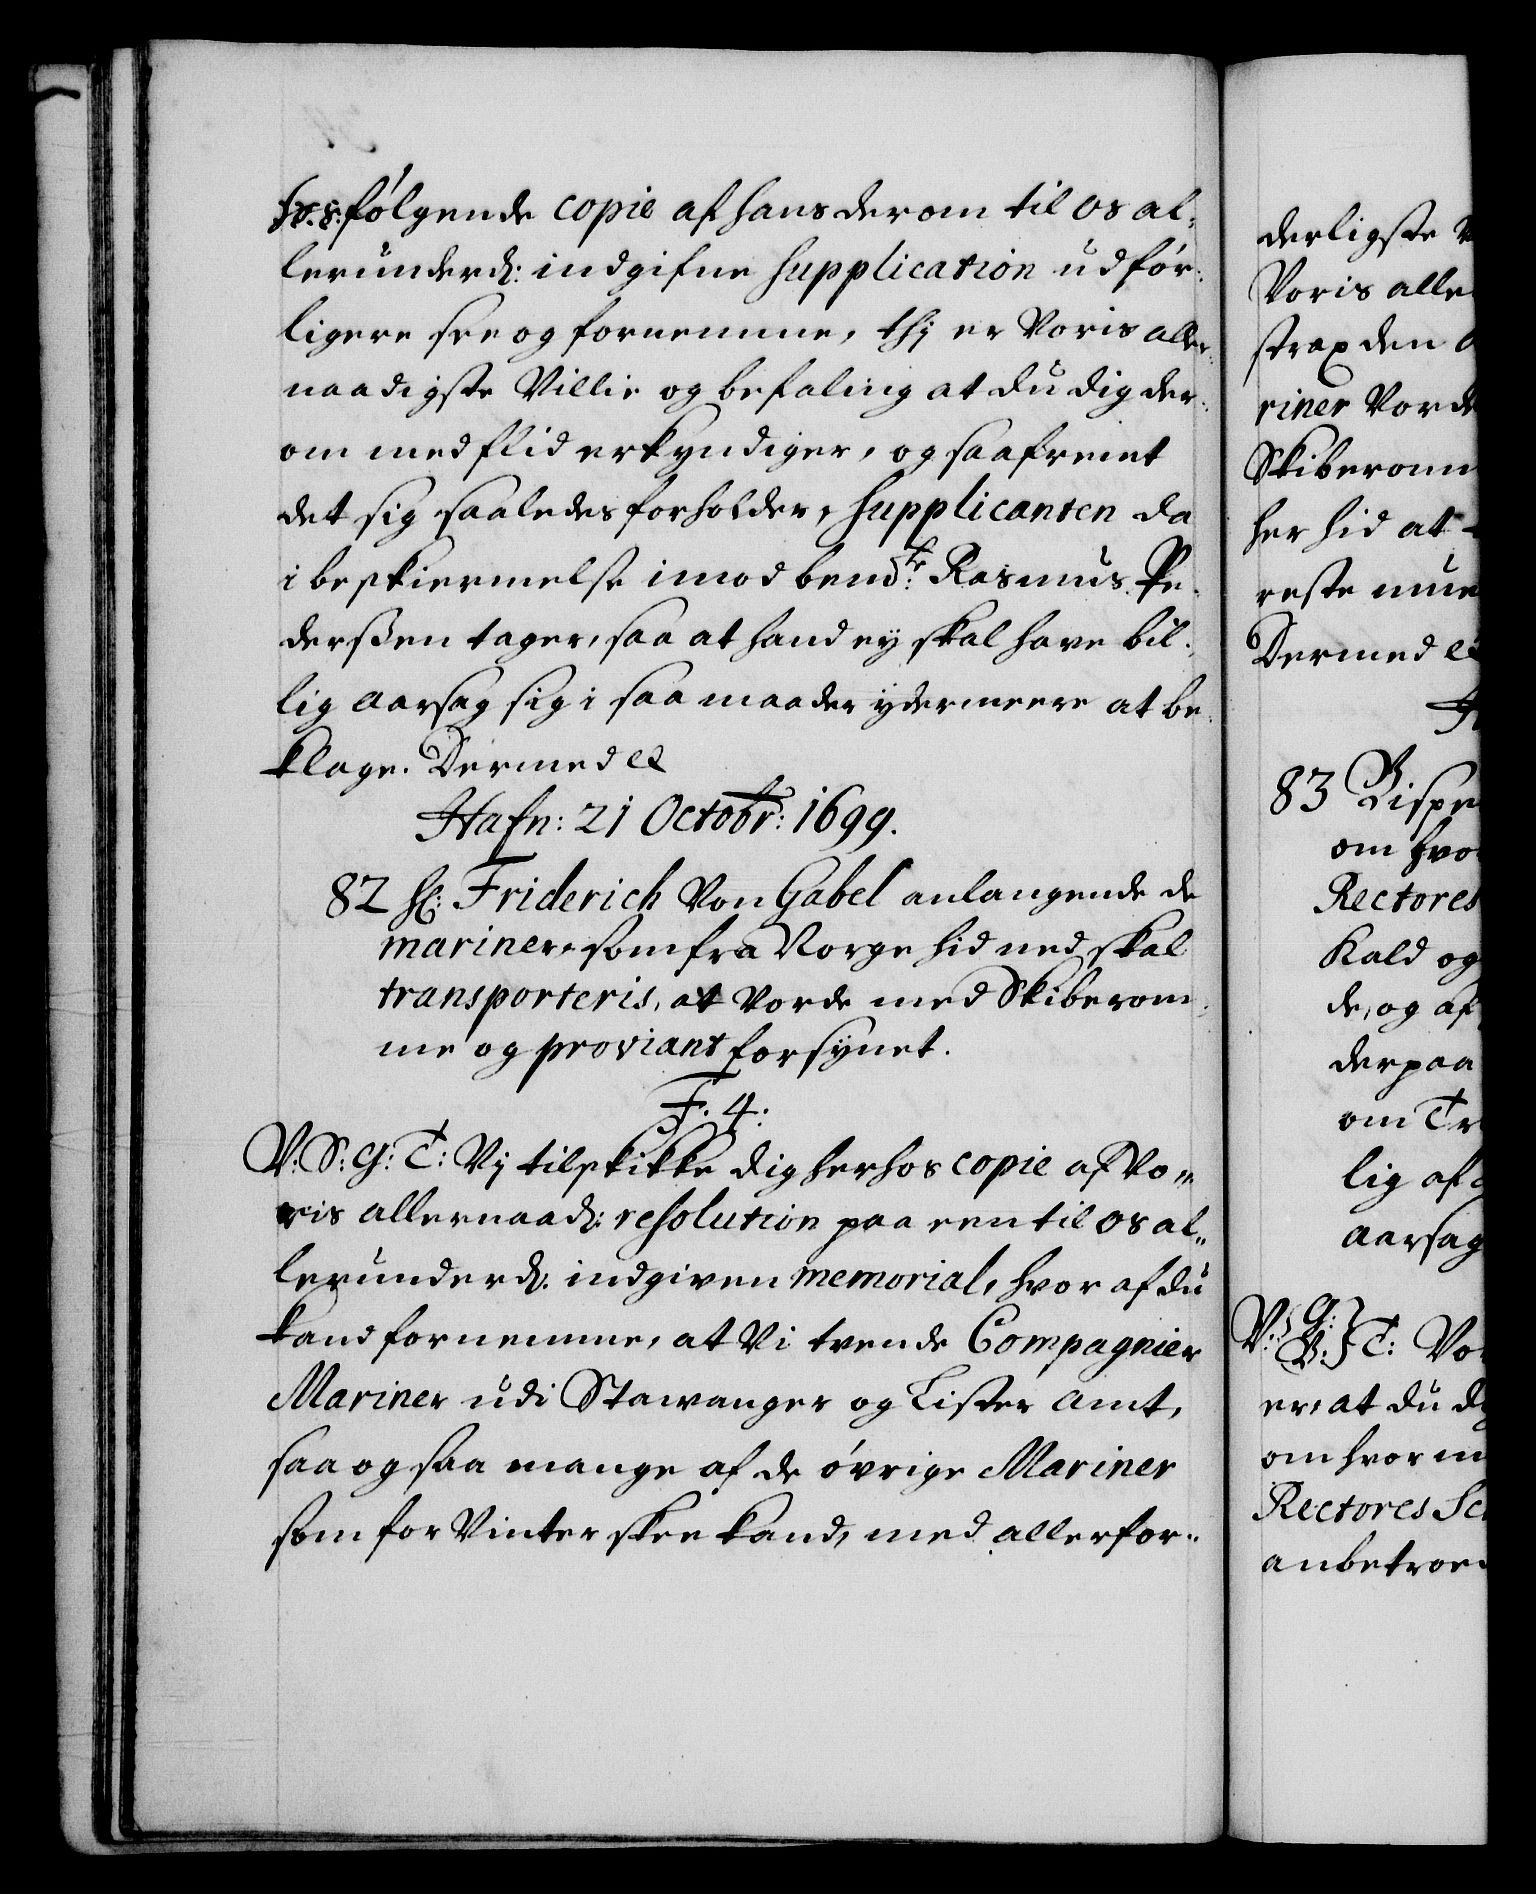 hosfølgende copie af hans derom til os al-
lerunderd: indgifne supplication udför-
ligere see og fornemme, thj er Voris aller-
naadigste Villie og befaling at du dig der-
om med flid erkyndiger, og saafremt
det sig saaledes forholder, supplicanten da
i beskiermelse imod bemte: Rasmus Pe-
derßen tager, saa at hand ey skal have bil-
lig aarsag sig i saa maader ydermeere at be-
klage. Dermed etc
Hafn: 21 Octobr: 1699.
82 Hr: Friderich Von Gabel anlangende de
mariner, som fra Norge hid ned skal
transporteris, at Vorde med Skiberom-
me og proviant forsynet.
F. 4:
V: S: G: T: Vj tilskikke dig herhos copie af Vo-
ris allernaad: resolution paa een til os al-
lerunderd: indgiven memorial, hvor af du
kand fornemme, at Vi trende Compagnier
Mariner udi Stawanger og Lister Amt,
saa og saa mange af de øvrige Mariner
som for Vinter skee kand, med allerfor-
derligste
Voris alle
strax den
riner Vorde
Skiberom
her hid at
reste mue
Dermed
83 Bispe
om hvor
Rectores
Kald og
de, og af
derpaa
om Tr
lig af
aarsag
V: G: B: T: Vor
er, at du
om hvor
Rectores Sc
anbetroe